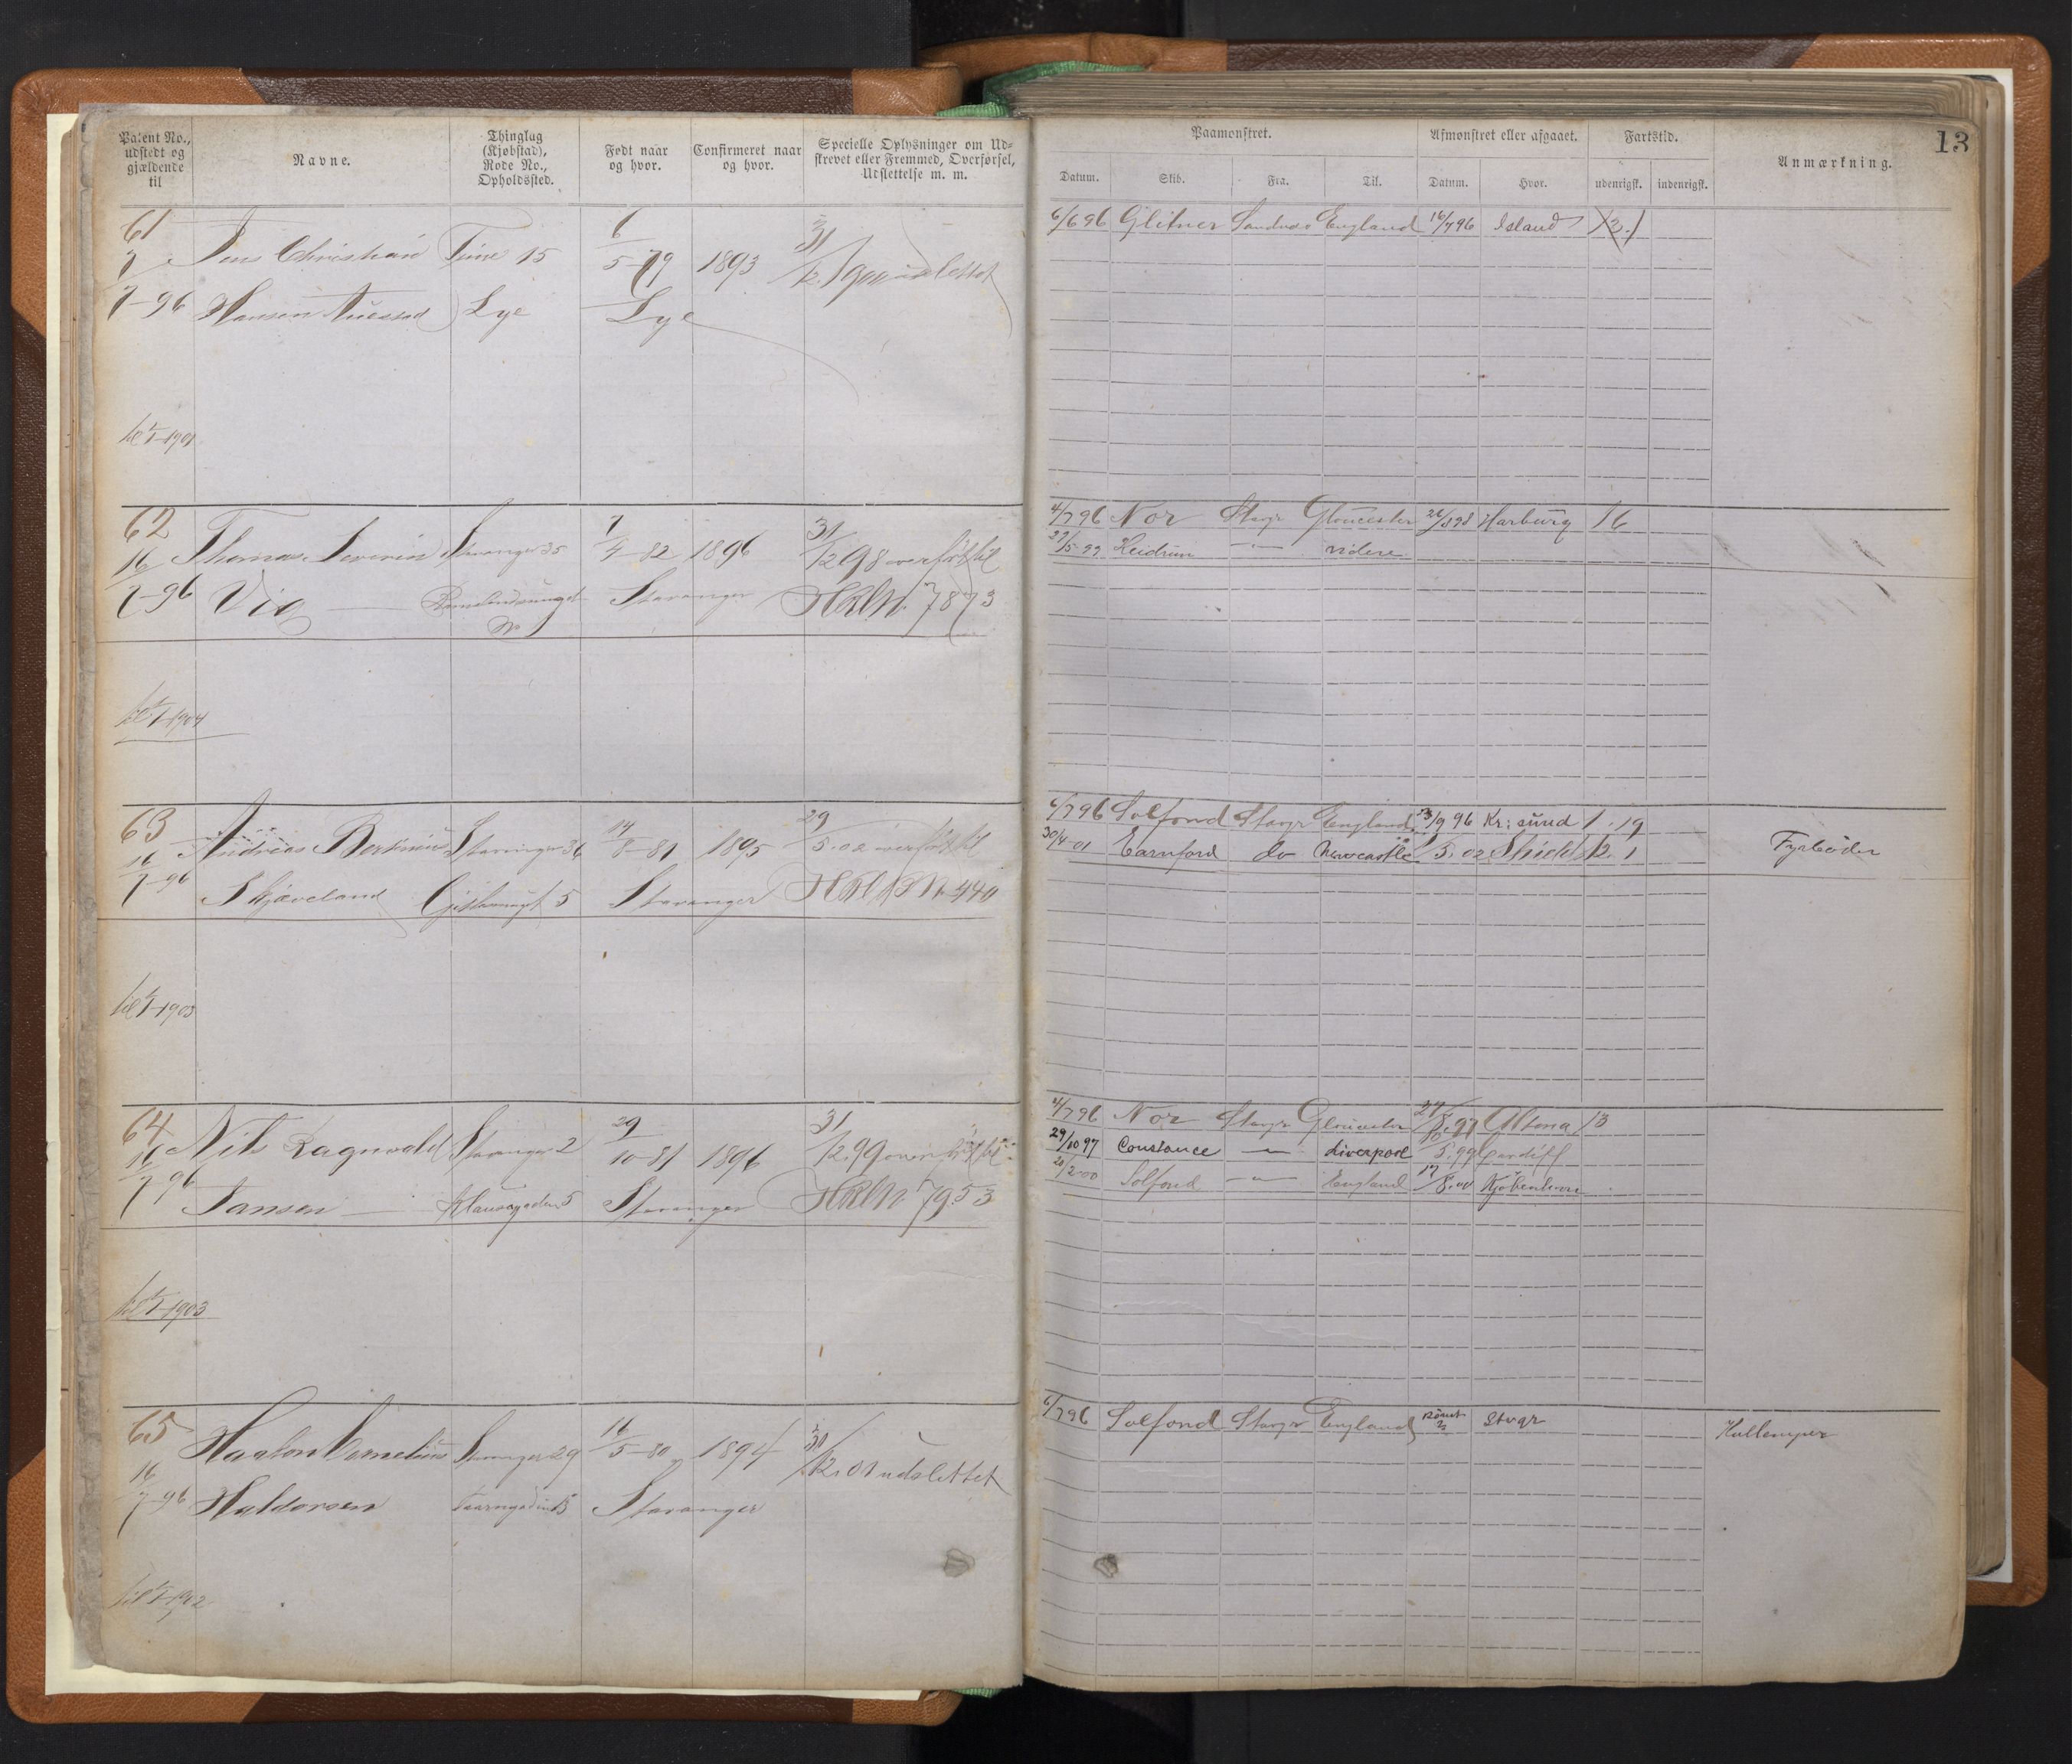 Patent No., udstedt og gjældende til
Navne.
Thinglag (Kjøbstad), Rode No., Opholdssted.
Født naar og hvor.
Confirmeret naar og hvor.
Specielle Oplysninger om Udskrevet eller Fremmed, Overførsel, Udslettelse m. m.
Paamønstret.
Afmønstret eller afgaaet.
Fartstid.
Anmærkning.
13
Datum. Skib. Fra. Til. Datum. Hvor. udenrigsk. indenrigsk.
61 Jens Christian Time 15 6/5-79 1893 31/12 1900 udslettet
7/7-96 Hansen Lye Lye
til 1/1-1901
6/6 96 Glitner Sandnes England 16/7 96 Island
62 Thomas Severin Stavanger 35 7/4-82 1896 31/12 98 overført til
16/7-96 Stavanger 7873
til 1/1-1904
4/7 96 Nor Stavgr Gloucester 26/8 98 Harburg 16
27/5-99 Heidrun — videre
63 Andreas Berthinius Stavanger 36 14/8-81 1895 29/5.02 overført til
16/7-96 Skjæveland 5 Stavanger 440
til 1/1-1903
6/7 96 Solfond Stavgr England 23/9 96 Kr:sund 1.19
30/4-01 Earnford do Newcastle 5.02 Shields 12.1
Fyrbøder
64 Nils Ragnvald Stavanger 2 29/10-81 1896 31/12.99 overført til
16/7 96 Jansen 5 Stavanger 7953
til 1/1-1903
4/7 96 Nor Stavgr Gloucester 24/8.97 Altona 13
29/10 97 Constance — Liverpool 10/5.99 Cardiff
20/2-00 Solfond — England 17/8.00 Kjøbenhavn
65 Haakon Cornelius Stavanger 29 16/5-80 1894 31/12.01 udslettet
16/7-96 Haldorsen Stavanger
til 1/1-1902
6/7 96 Solfond Stavgr England rømt Stvgr
Kullemper